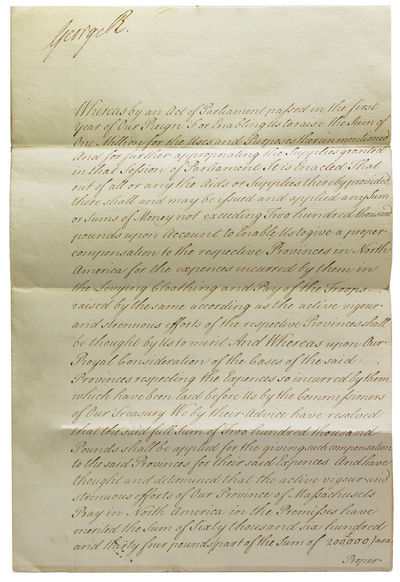 George R.
Whereas by an Act of Parliament passed in the first
Year of Our Reign For Enabling Us to raise the Sum of
One Million for the Uses and Purposes therein mentioned
And for further appropriating the Supplies granted
in that Session of Parliament It is Enacted That
out of all or any the Aids or Supplies thereby provided
there shall and may be issued and applied any Sum
or Sums of Money not exceeding Two hundred thousand
pounds upon Account to Enable Us to give a proper
compensation to the respective Provinces in North
America for the expences incurred by them in
the Levying Cloathing and Pay of the Troops
raised by the same according as the active vigour
and strenuous efforts of the respective Provinces shall
be thought by Us to merit And Whereas upon Our
Royal Consideration of the Cases of the said
Provinces respecting the Expences so incurred by them
which have been laid before Us by the Commissioners
of Our Treasury We by their Advice have resolved
that the said full Sum of Two hundred thousand
Pounds shall be applied for the giving such compensation
to the said Provinces for their said Expences And have
thought and determined that the active vigour and
strenuous efforts of Our Province of Massachusets
Bay in North America in the Premisses have
merited the Sum of Sixty thousand six hundred
and thirty four pounds part of the Sum of 200000 as a
Proper